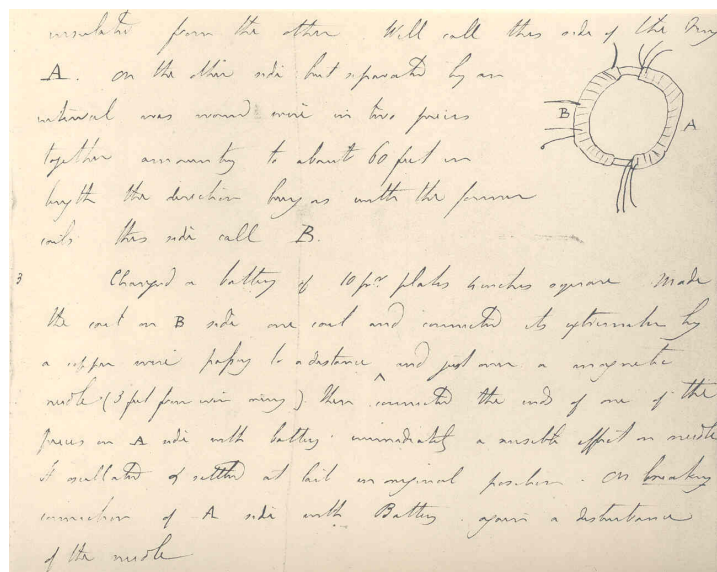 insulated from the other. Will call this side of the Ring
A. on the other side but separated by an
interval was wound wire in two pieces
together amounting to about 60 feet in
length the direction being as with the former
coils this side call B.
3 Charged a battery of 10 pr. plates 4 inches square. Made
the coil on B side one coil and connected its extremities by
a copper wire passing to a distance and just over a magnetic
needle (3 feet from wire ring) then connected the ends of one of the
pieces on A side with battery. immediately a sensible effect on needle
It oscillated & settled at last in original position. On breaking
connection of A side with Battery again a disturbance
of the needle
B
A